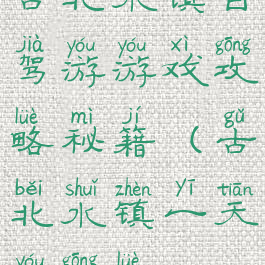 jià yóu yóu xì gōng
驾游游戏攻
lüè mì jí gǔ
略秘籍（古
běi shuǐ zhèn yī tiān
北水镇一天
yóu gōng lüè